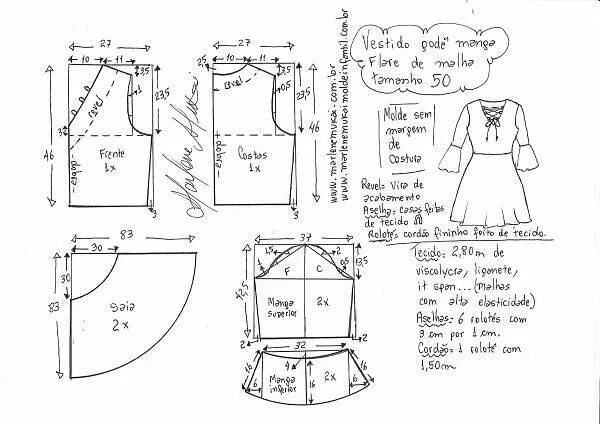 Vestido godê manga
Flare de malha
tamanho 50
27
10
11
3,5
1
23,5
revel
3
46
dobra
Frente
1x
3
Marlene Mukai
27
2,5
10
11
3,5
0,5
23,5
revel
46
dobra
Costas
1x
3
www.marlenemukai.com.br
www.marlenemukai.moldeinfantil.com.br
Molde sem
margem
de
costura
Revel= Vira de
acabamento
Aselha= casas feitas
de tecido
Rolotês= cordão fininho feito de tecido.
83
30
30
83
Saia
2x
37
1,5
2
1
0,5
13,5
F
C
42,5
Manga
superior
2x
2
2
32
16
6
4
16
6
16
Manga
inferior
2x
Tecido: 2,80m de
viscolycra, liganete,
it span... (malhas
com alta elasticidade)
Aselhas: 6 rolotés com
3 cm por 1 cm.
Cordão: 1 roloté com
1,50m